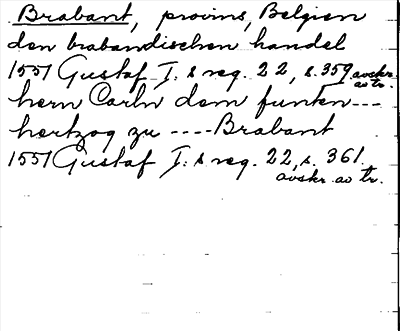 Brabant, provins, Belgien
den brabandischen handel
1551 Gustaf I:s reg. 22, s. 359 avskr. av tr.
hern Carln dem funten ---
hertzog zu ---- Brabant
1551 Gustaf I:s reg. 22, s. 361.
avskr. av tr.